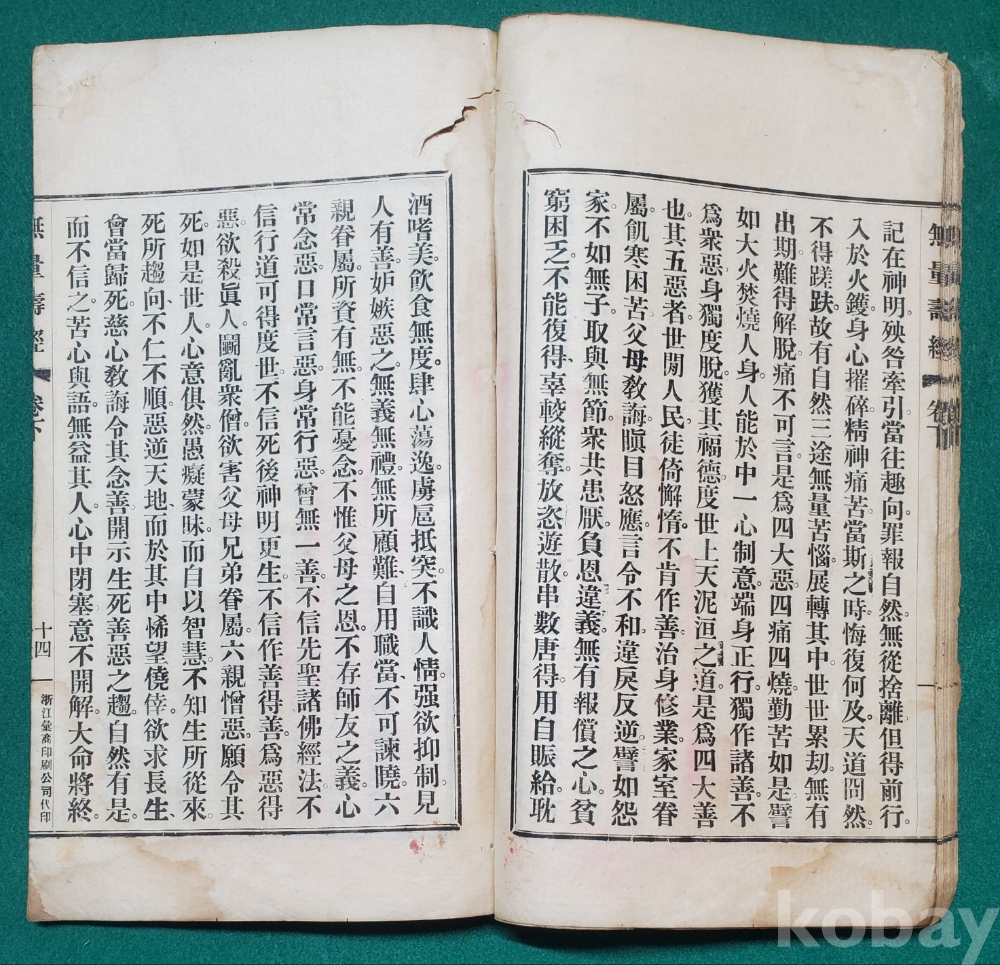 無量壽經 卷下
記在神明。殃咎牽引當往趣向罪報自然無從捨離但得前行。
入於火鑊身心摧碎精神痛苦當斯之時悔復何及天道罔然
不得蹉趺故有自然三途無量苦惱展轉其中世世累劫無有
出期難得解脫痛不可言是爲四大惡四痛四燒勤苦如是譬
如大火焚燒人身人能於中一心制意端身正行獨作諸善不
爲衆惡身獨度脫獲其福德度世上天泥洹之道是爲四大善
也其五惡者世閒人民徒倚懈惰不肯作善治身修業家室眷
屬飢寒困苦父母敎誨瞋目怒應言令不和違戾反逆譬如怨
家不如無子取與無節衆共患厭負恩違義無有報償之心貧
窮困乏不能復得辜較縱奪放恣遊散串數唐得用自賑給耽
酒嗜美飮食無度肆心蕩逸虜扈抵突不識人情强欲抑制見
人有善妒嫉惡之無義無禮無所顧難自用職當不可諫曉六
親眷屬所資有無不能憂念不惟父母之恩不存師友之義心
常念惡口常言惡身常行惡曾無一善不信先聖諸佛經法不
信行道可得度世不信死後神明更生不信作善得善爲惡得
惡欲殺眞人鬭亂衆僧欲害父母兄弟眷屬六親憎惡願令其
死如是世人心意俱然愚癡蒙昧而自以智慧不知生所從來
死所趨向不仁不順惡逆天地而於其中悕望僥倖欲求長生
會當歸死慈心敎誨令其念善開示生死善惡之趨自然有是。
而不信之苦心與語無益其人心中閉塞意不開解大命將終
無量壽經 卷下 十四 浙江彙齋印刷公司代印
kobay